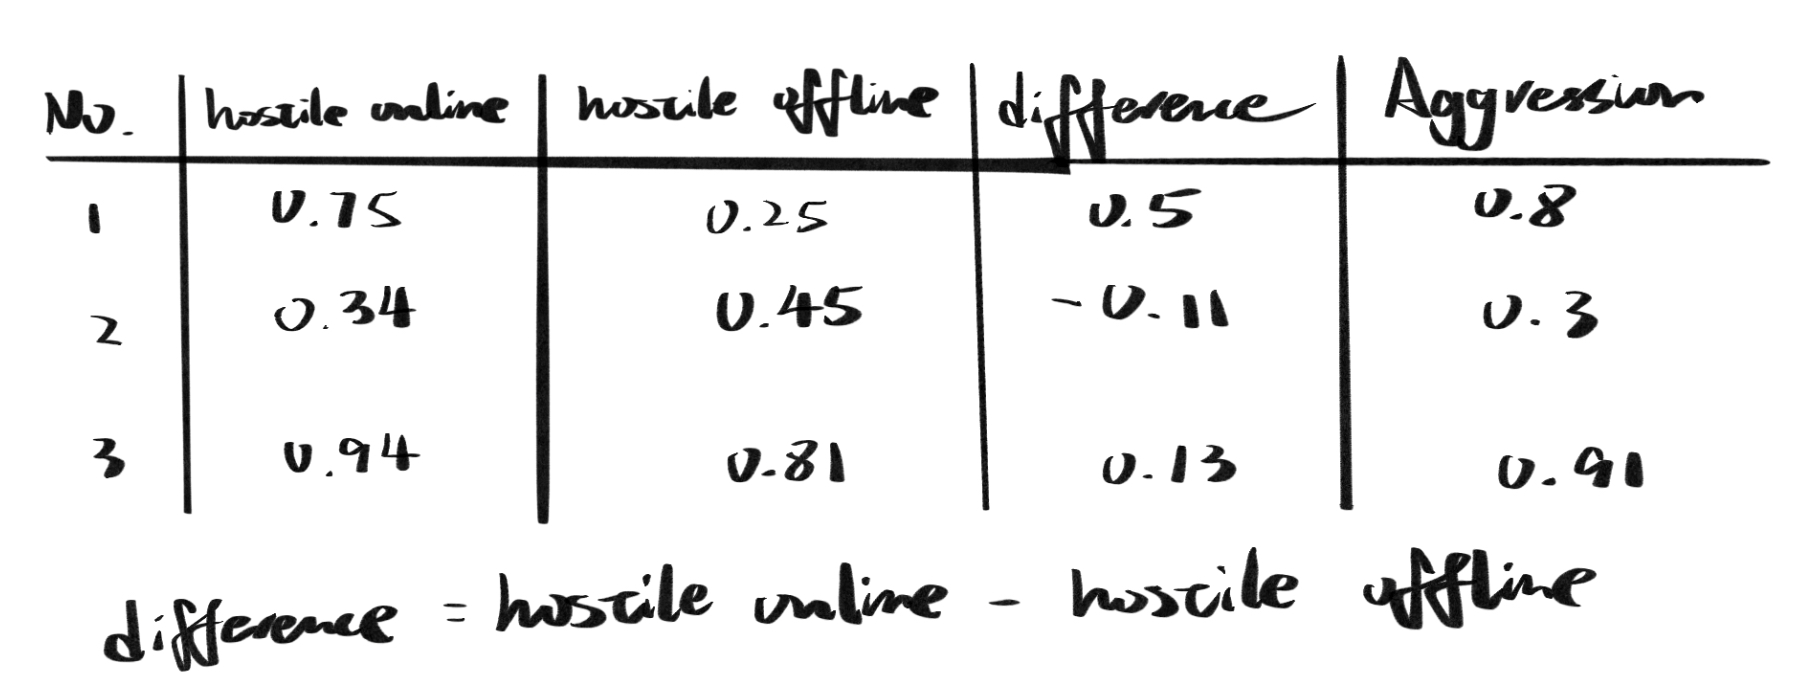 No. hostile online hostile offline difference Aggression
1 0.75 0.25 0.5 0.8
2 0.34 0.45 -0.11 0.3
3 0.94 0.81 0.13 0.91
difference = hostile online - hostile offline